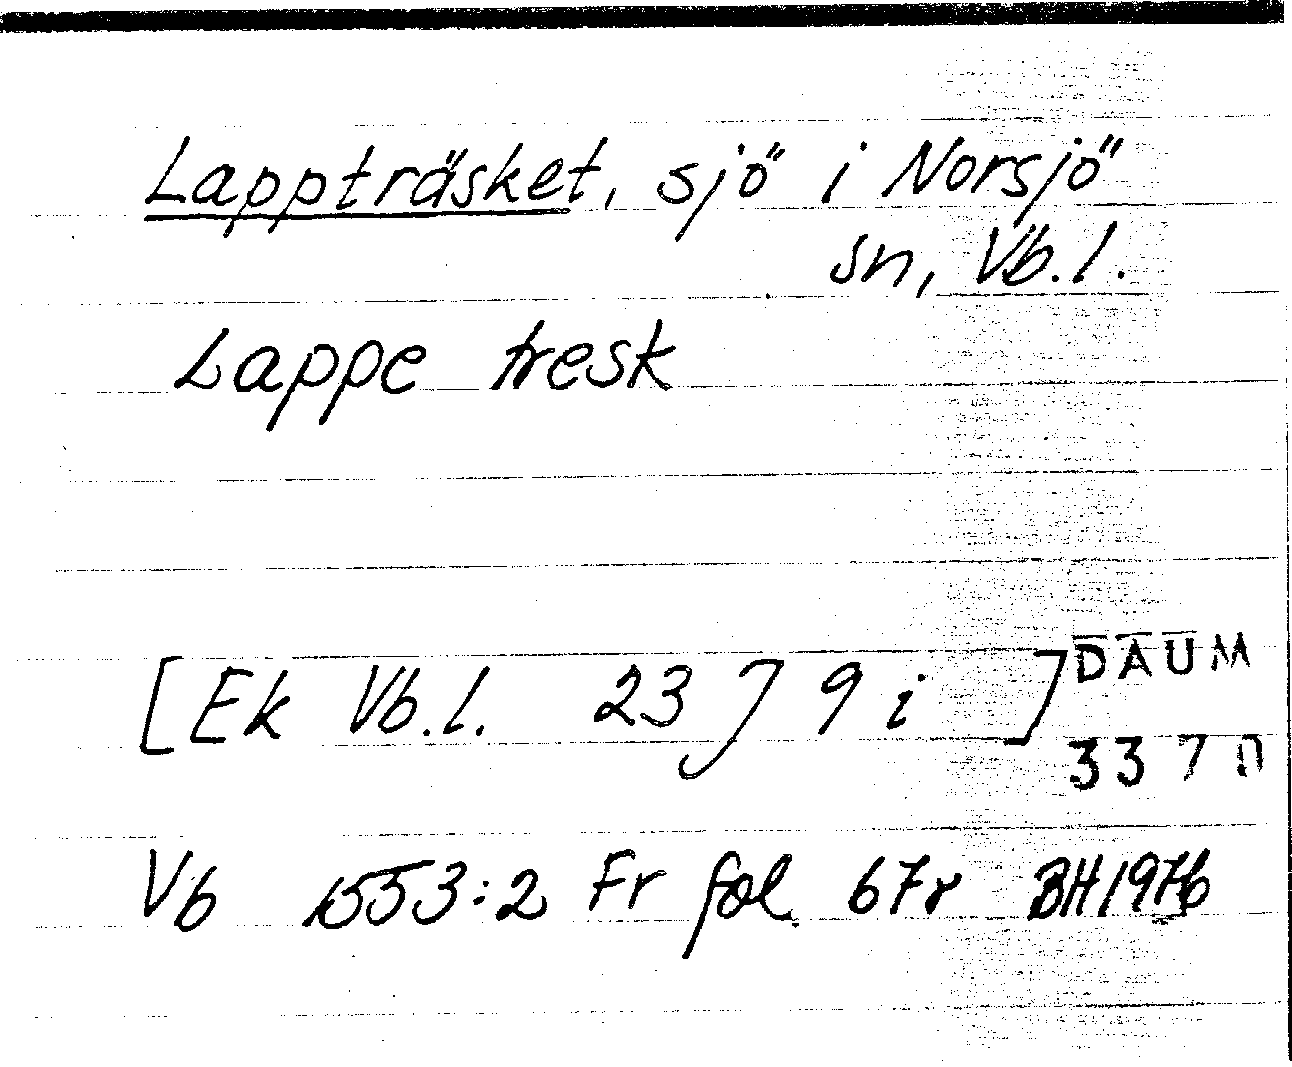 Lappträsket, sjö i Norsjö
sn, Vb.l.
Lappe tresk
[Ek Vb.l. 23 J 9 i ]
DAUM
3370
Vb 1553:2 Fr fol. 67r BH1976